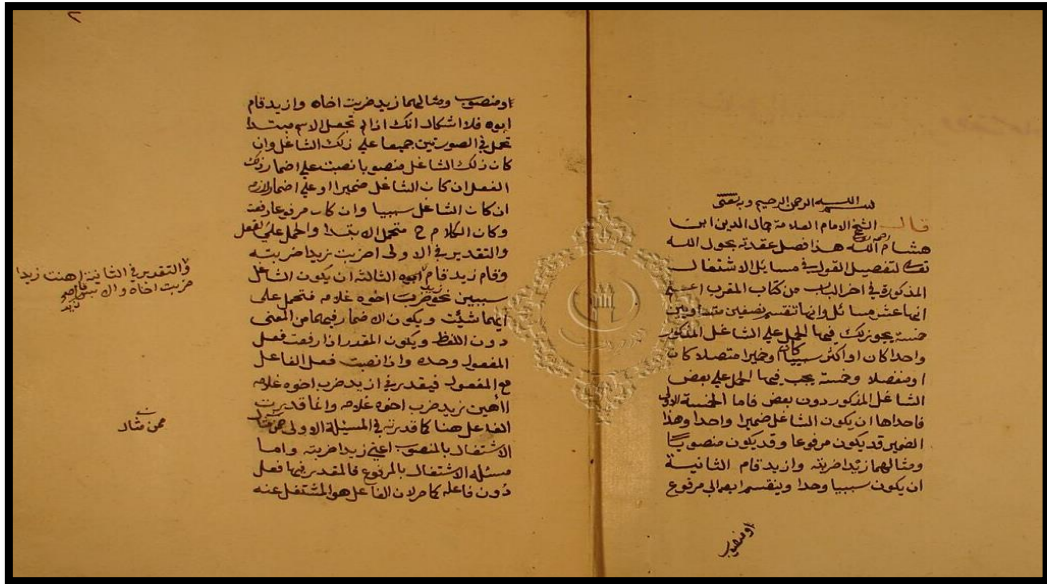 بسم الله الرحمن الرحيم وبه ثقتي
قال الشيخ الامام العلامة جمال الدين ابن
هشام رحمه الله هذا فصل عقدته بحول الله
تعالى لتفصيل القول في مسائل الاشتغال
المذكورة في اخر الباب من كتاب المقرب اعلم
انها عشر مسائل وانها تنقسم نصفين متساويين
خمسة يجوز لك فيها الحمل على الشاغل المذكور
واحدا كان او اكثر سببيا كان او ضميرا متصلا كان
او منفصلا وخمسة يجب فيها الحمل على بعض
الشاغل المذكور دون بعض فاما الخمسة الاولى
فاحداها ان يكون الشاغل ضميرا واحدا وهذا
الضمير قد يكون مرفوعا وقد يكون منصوبا
ومثالهما زيدا ضربته وازيد قام الثانية
ان يكون سببيا وحدا وينقسم ايضا الى مرفوع
او منصوب
او منصوب ومثالهما زيد ضربت اخاه وازيد قام
ابوه فلا اشكال انك اذا لم تجعل الاسم مبتدا
تحمل في الصورتين جميعا على ذلك الشاغل وان
كان ذلك الشاغل منصوبا نصبت على اضمار ذلك
الفعل ان كان الشاغل ضميرا او على اضمار لازمه
ان كان الشاغل سببيا وان كان مرفوعا رفعت
وكان الكلام ح محتمل الابتدا والحمل على الفعل
والتقدير في الاولى اضربت زيدا ضربته
وقام زيد قام ابوه الثالثة ان يكون الشاغل
سببين نحو ضرب اخوه غلامه فتحمل على
ايهما شئت ويكون الاضمار فيهما من المعنى
دون اللفظ ويكون المقدر اذا رفعت فعل
المفعول وحده واذا نصبت فعل الفاعل
مع المفعول فيقدر في ازيد ضرب اخوه غلامه
ااهين زيد ضرب اخوه غلامه وانما قدرت
الفاعل هنا كما قدرته في المسيلة الاولى
الاشتغال بالمنصوب اعني زيدا ضربته واما
مسئلة الاشتغال بالمرفوع فالمقدر فيها فعل
دون فاعله كما مر لان الفاعل هو المشتغل عنه
والتقدير في الثانية اهنت زيدا
ضربت اخاه